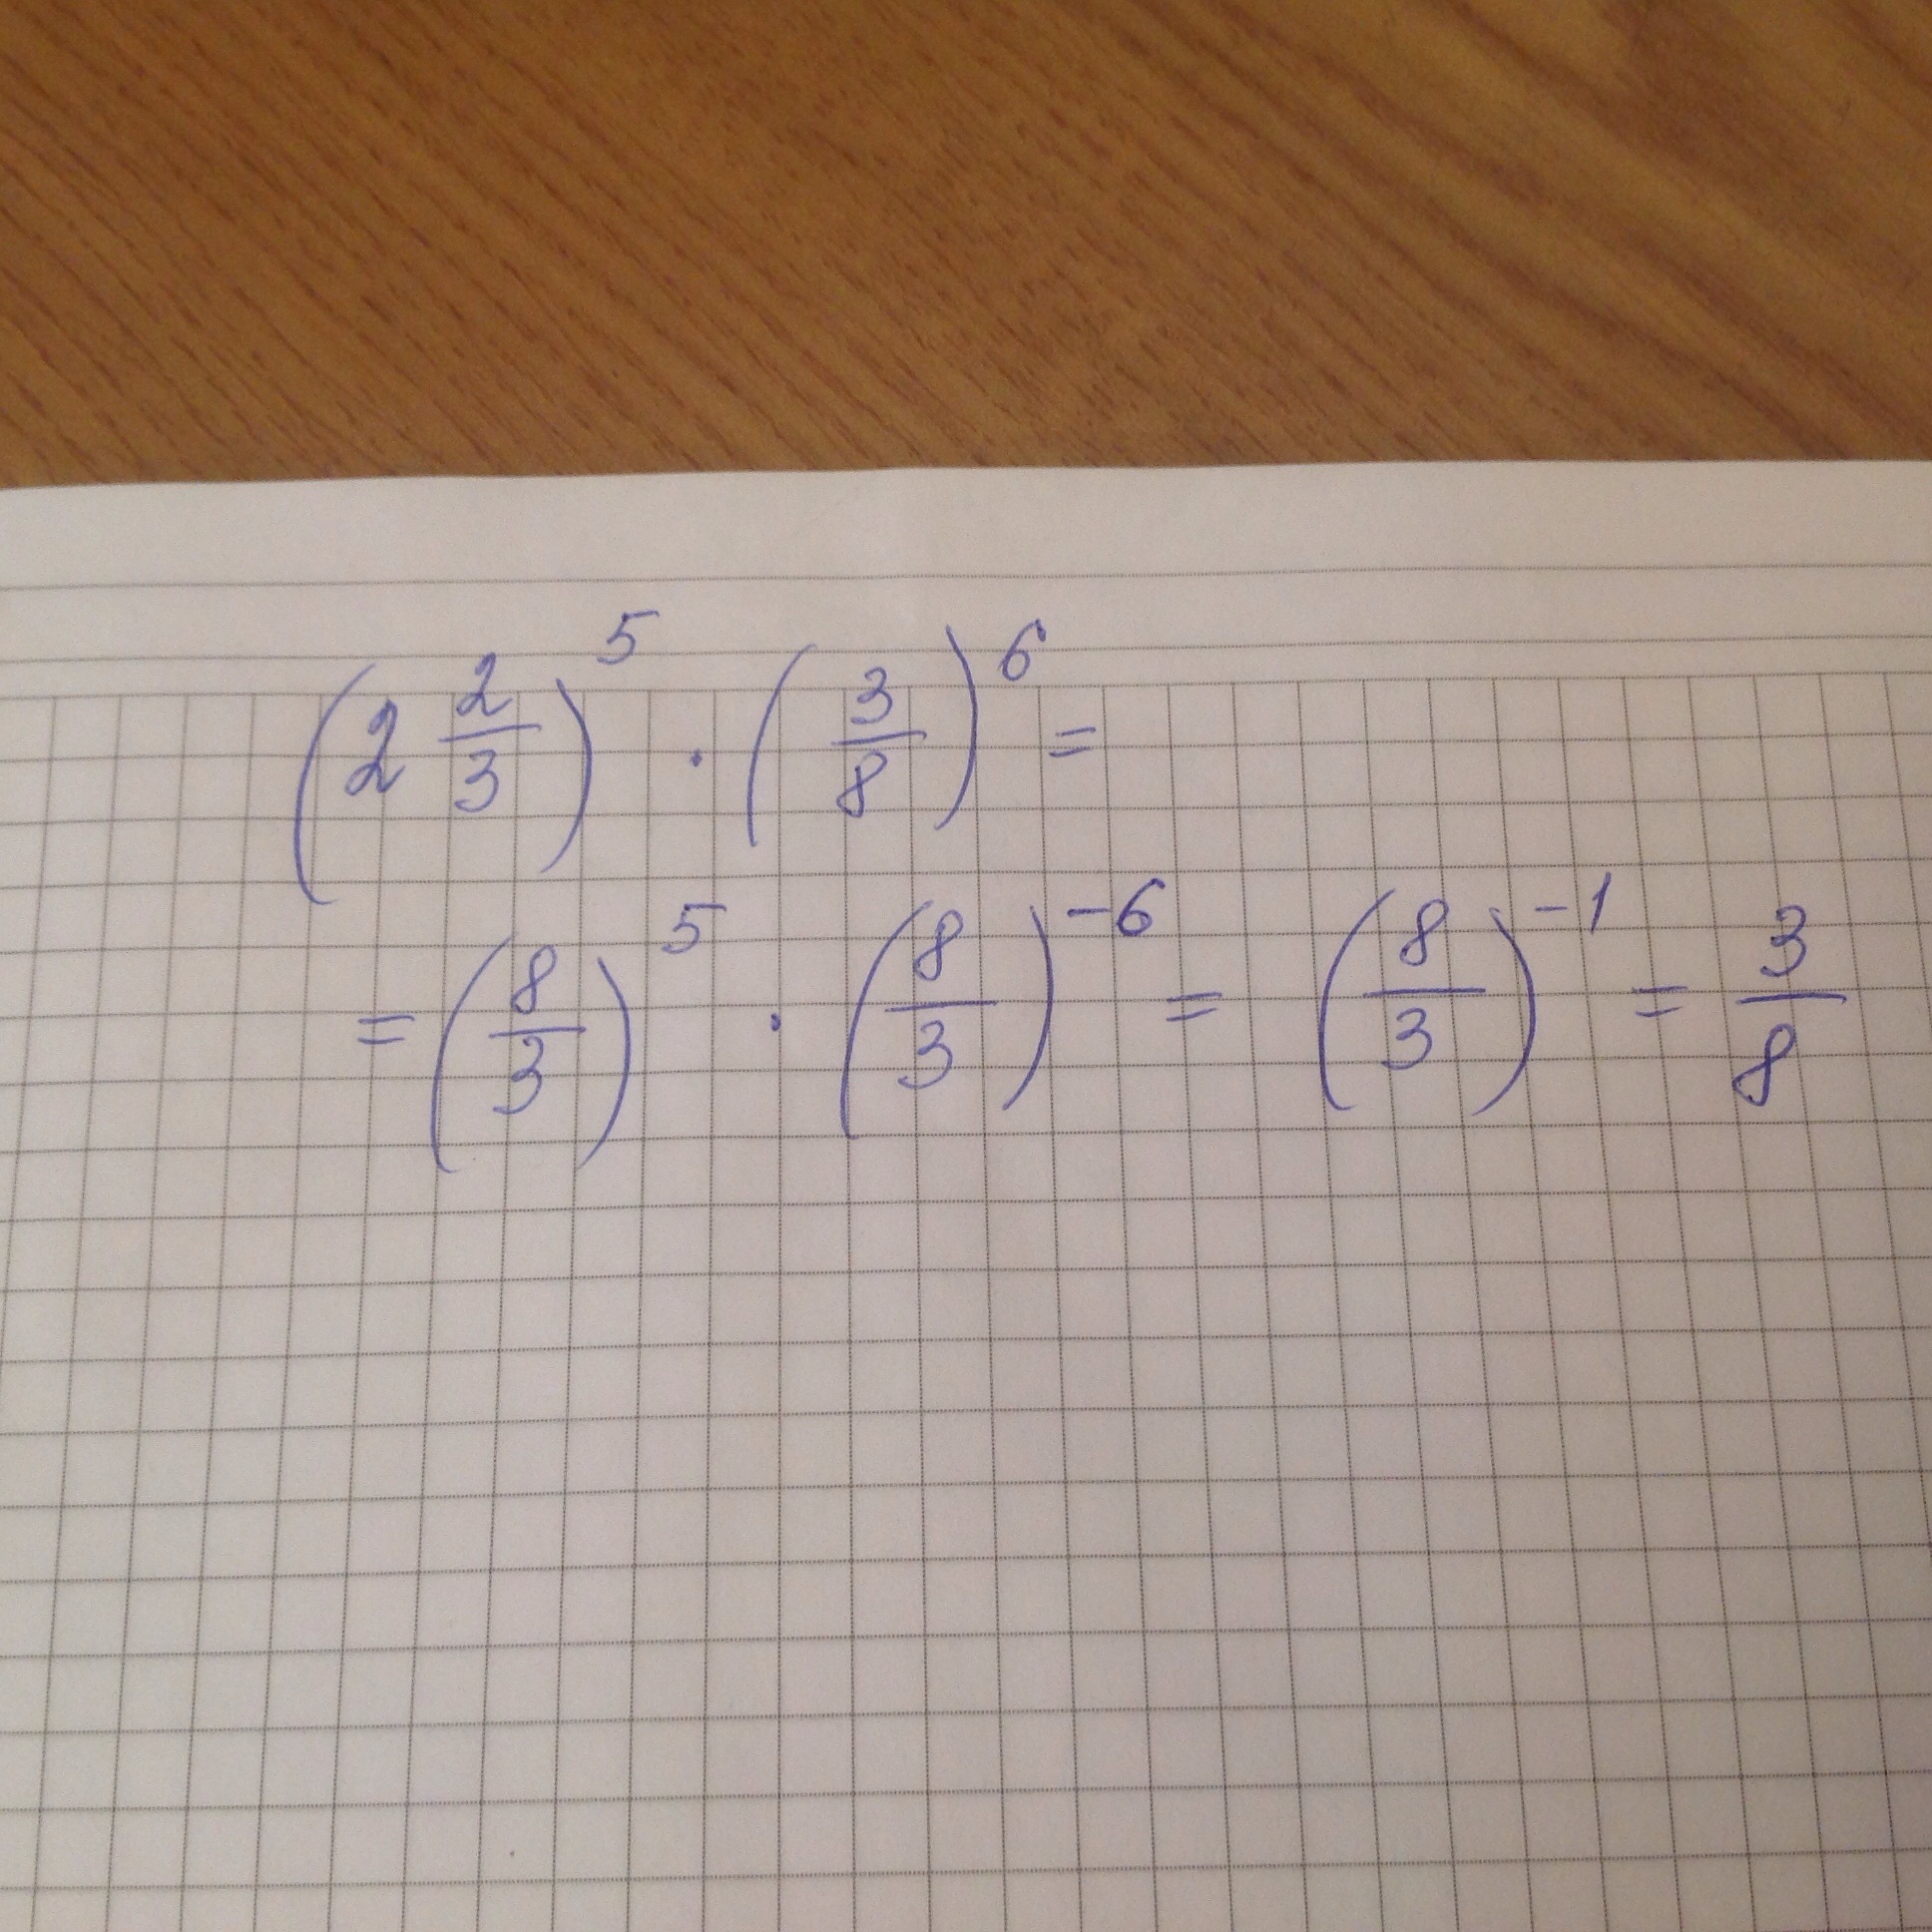 (2 2/3)^5 · (3/8)^6 =
= (8/3)^5 · (8/3)^-6 = (8/3)^-1 = 3/8